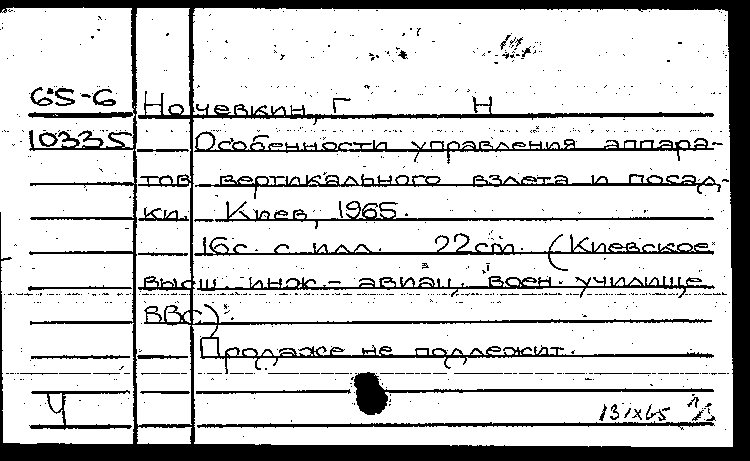 65-6 Ночевкин, Г Н
10335 Особенности управления аппара-
тов вертикального взлета и посад-
ки. Киев, 1965.
16с. с илл. 22cm. (Киевское
высш. инж.- авиац. воен. училище
ВВС).
Продаже не подлежит.
Ч 131x65